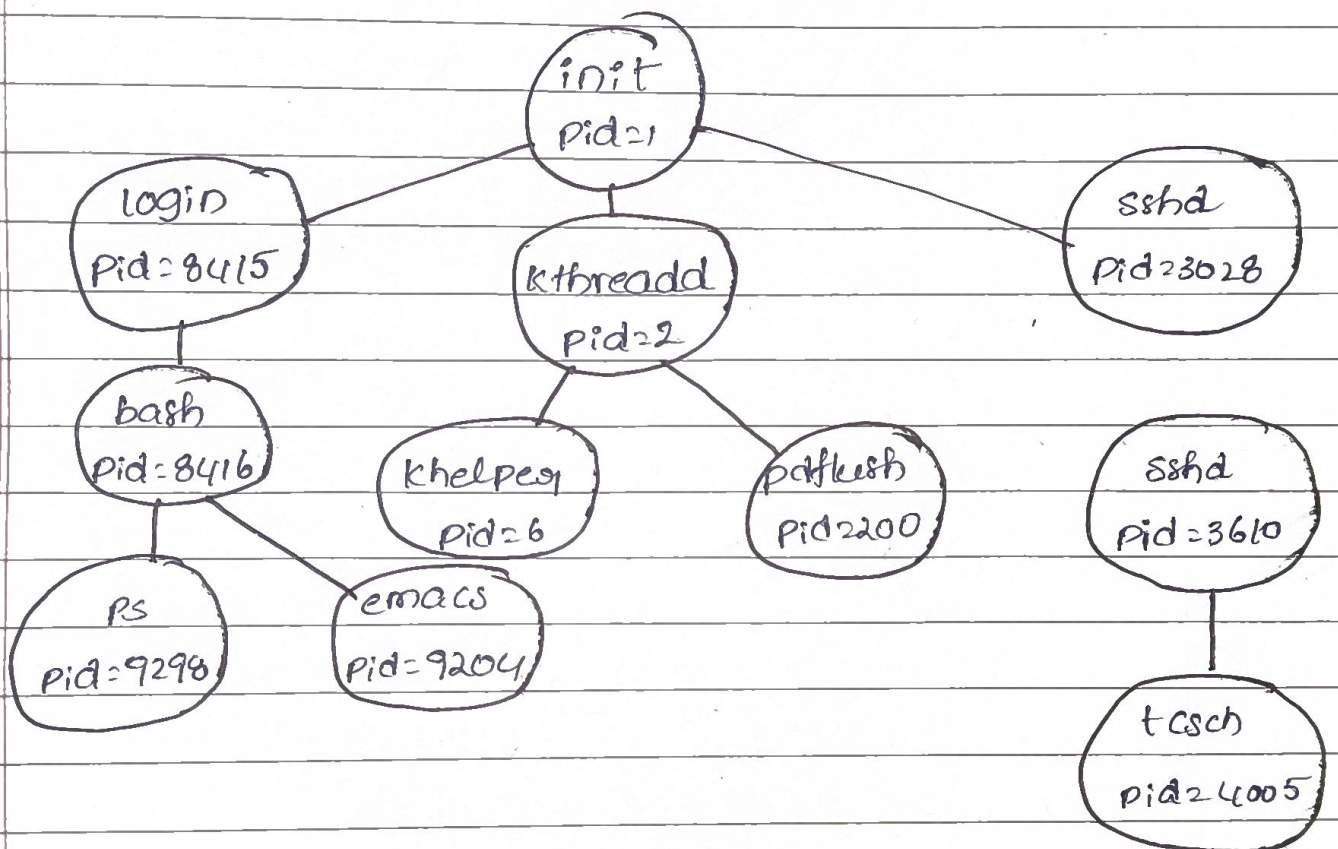 init
pid=1
login
pid=8415
kthreadd
pid=2
sshd
pid=3028
bash
pid=8416
khelper
pid=6
pdflush
pid=200
sshd
pid=3610
ps
pid=9298
emacs
pid=9204
tcsch
pid=4005